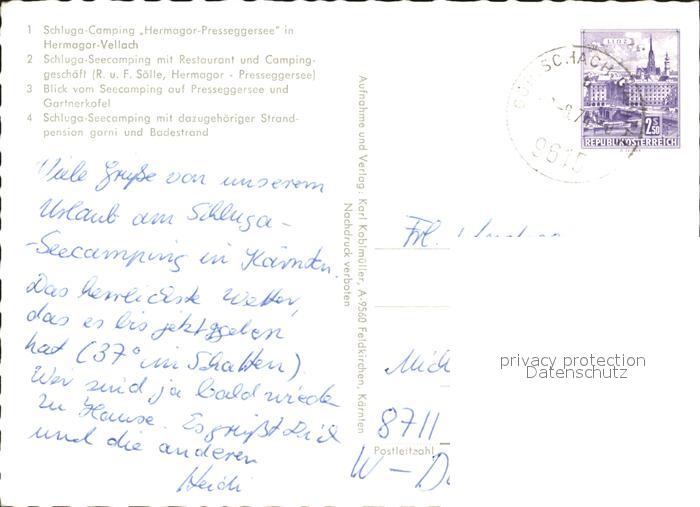 1 Schluga-Camping „Hermagor-Presseggersee" in
Hermagor-Vellach
2 Schluga-Seecamping mit Restaurant und Camping-
geschäft (R. u. F. Sölle, Hermagor - Presseggersee)
3 Blick vom Seecamping auf Presseggersee und
Gartnerkofel
4 Schluga-Seecamping mit dazugehöriger Strand-
pension garni und Badestrand
Viele Grüße von unserem
Urlaub am Schluga-
-Seecamping in Kärnten.
Das herrlichste Wetter,
das es bis jetzt geben
hat (37° im Schatten).
Wir sind ja bald wieder
zu Hause. Es grüßt Dich
und die anderen
Heidi
Aufnahme und Verlag: Karl Koblmüller, A-9560 Feldkirchen, Kärnten
Nachdruck verboten
LINZ
2S50
REPUBLIK ÖSTERREICH
9615
Frl.
Mich
8711
Postleitzahl
W - D
privacy protection
Datenschutz